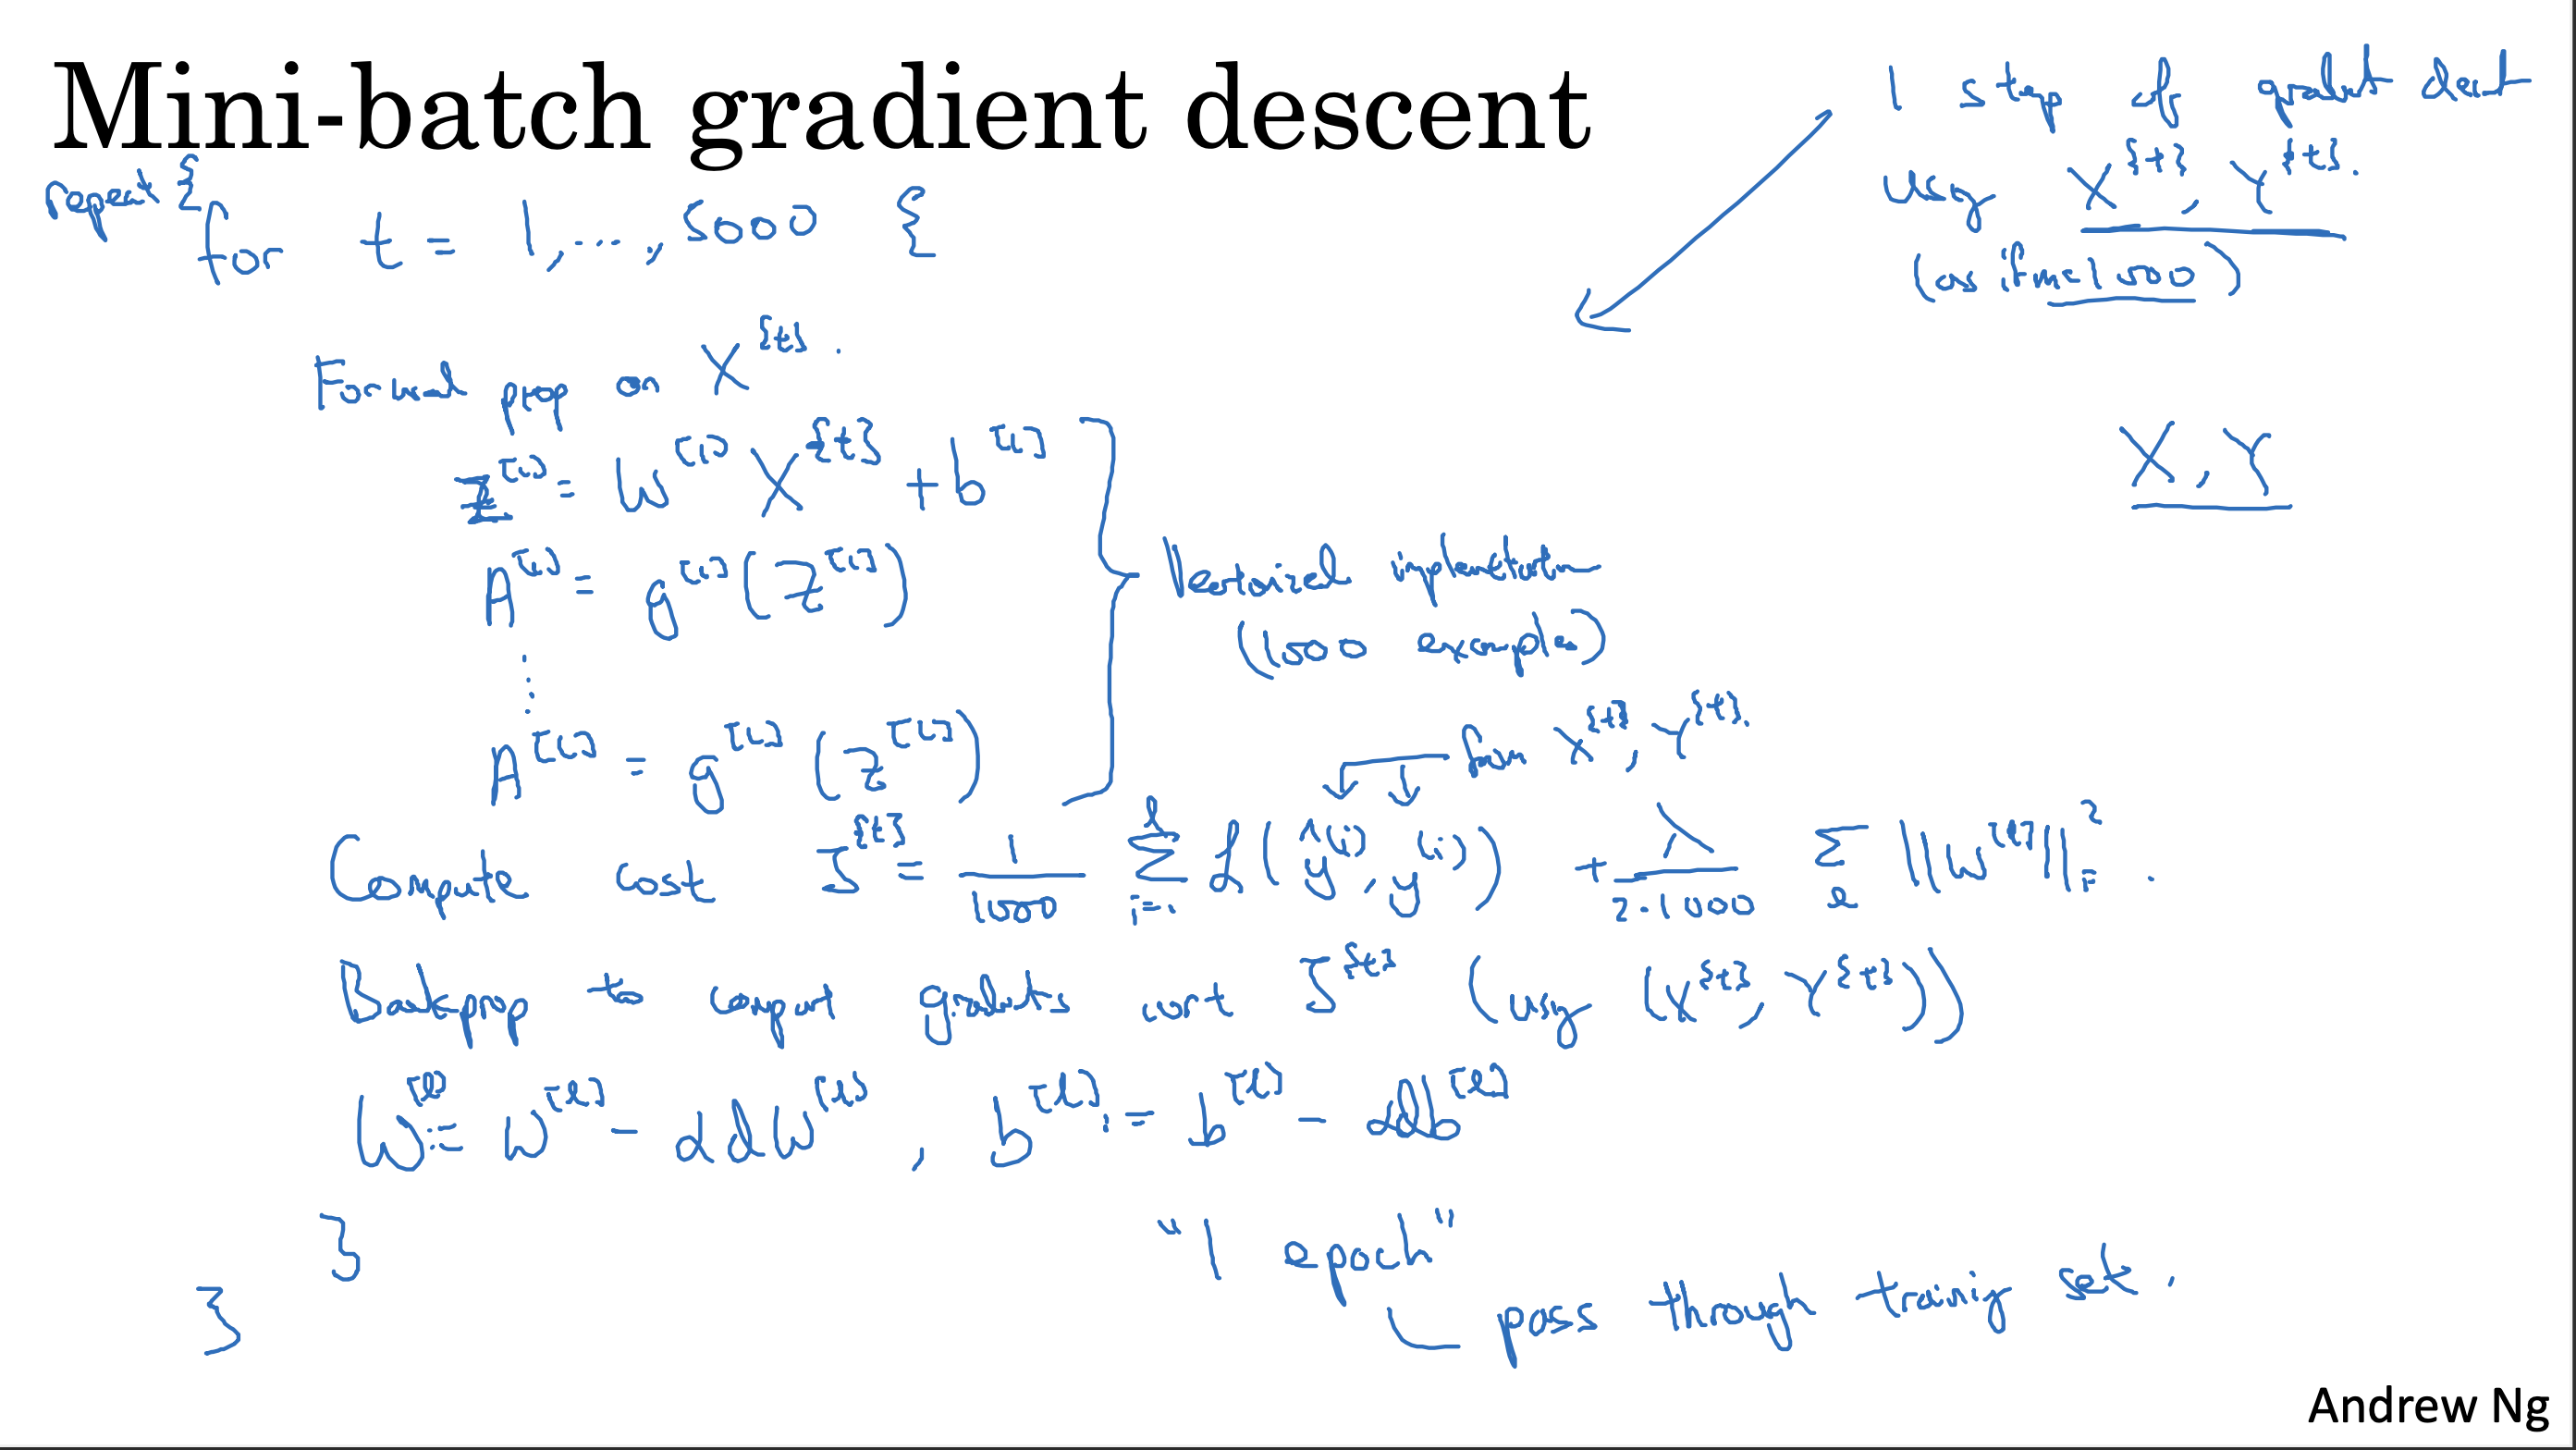 Mini-batch gradient descent
1 step of gradient descent
using X^{t}, Y^{t}.
(as if m=1000)
repeat {
for t = 1,...,5000 {
Forward prop on X^{t}.
Z^[1] = W^[1] X^{t} + b^[1]
A^[1] = g^[1](Z^[1])
⋮
A^[L] = g^[L](Z^[L])
Vectorized implementation
(1000 examples)
X, Y
from X^{t}, Y^{t}.
Compute cost J^{t} = 1/1000 Σ_{i=1}^{l} L(ŷ^(i), y^(i)) + λ/(2·1000) Σ_l ||W^[l]||_F^2.
Backprop to compute gradients wrt J^{t} (using (X^{t}, Y^{t}))
W^[l] := W^[l] - αdW^[l], b^[l] := b^[l] - αdb^[l]
}
}
"1 epoch"
pass through training set.
Andrew Ng